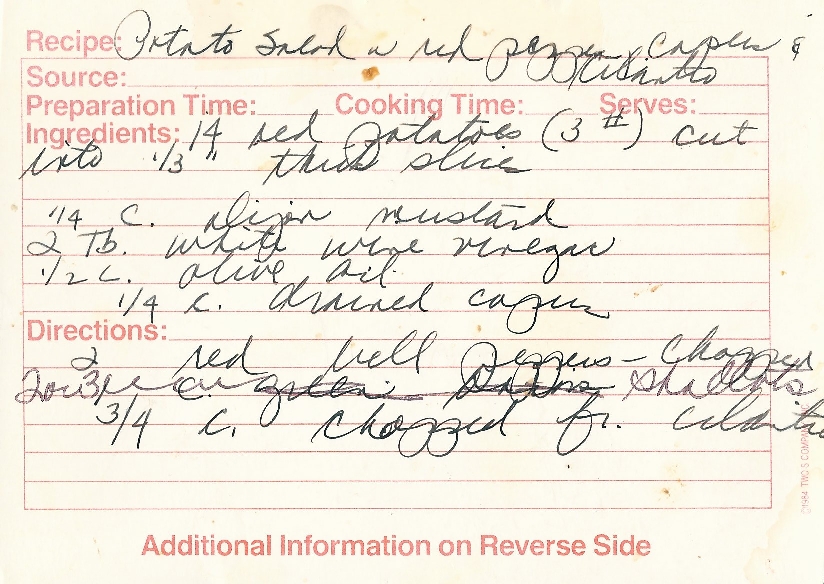 Recipe: Potato Salad w red pepper, capers &
Source: Cilantro
Preparation Time: Cooking Time: Serves:
Ingredients: 14 red potatoes (3 #) cut
into 1/3" thick slices
1/4 c. dijon mustard
2 Tb. white wine vinegar
1/2 c. olive oil
1/4 c. drained capers
Directions:
2 red bell peppers - chopped
2 or 3 c. green onions shallots
3/4 c. chopped fr. cilantro
©1984 TWO-S COMPANY
Additional Information on Reverse Side